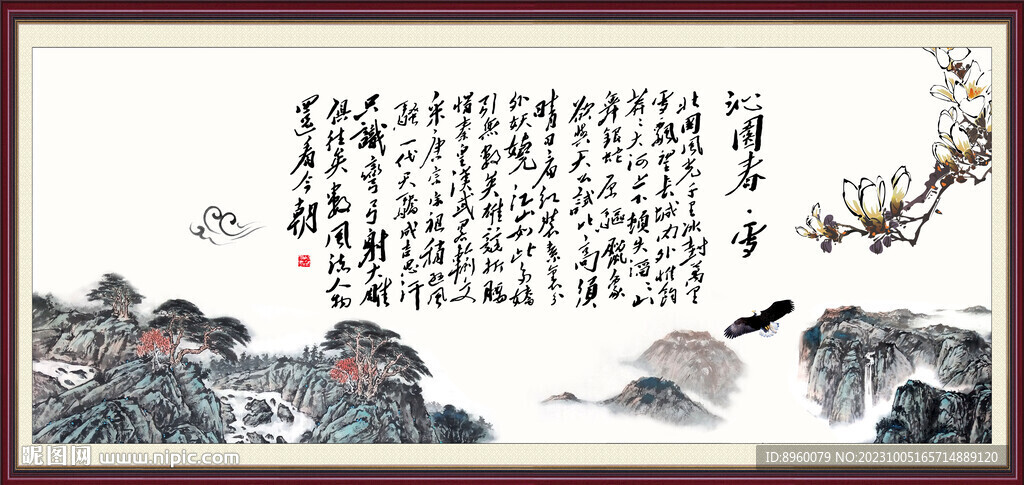 沁園春 雪
北國风光千里冰封萬里
雪飄望长城内外惟餘
莽〻大河上下頓失滔〻山
舞銀蛇原驅臘象
欲與天公試比高須
晴日看红装素裹分
外妖嬈江山如此多嬌
引無數英雄競折腰
惜秦皇漢武略輸文
采唐宗宋祖稍逊风
騷一代天驕成吉思汗
只識彎弓射大雕
俱往矣數风流人物
還看今朝
昵图网 www.nipic.com
ID:8960079 NO:20231005165714889120